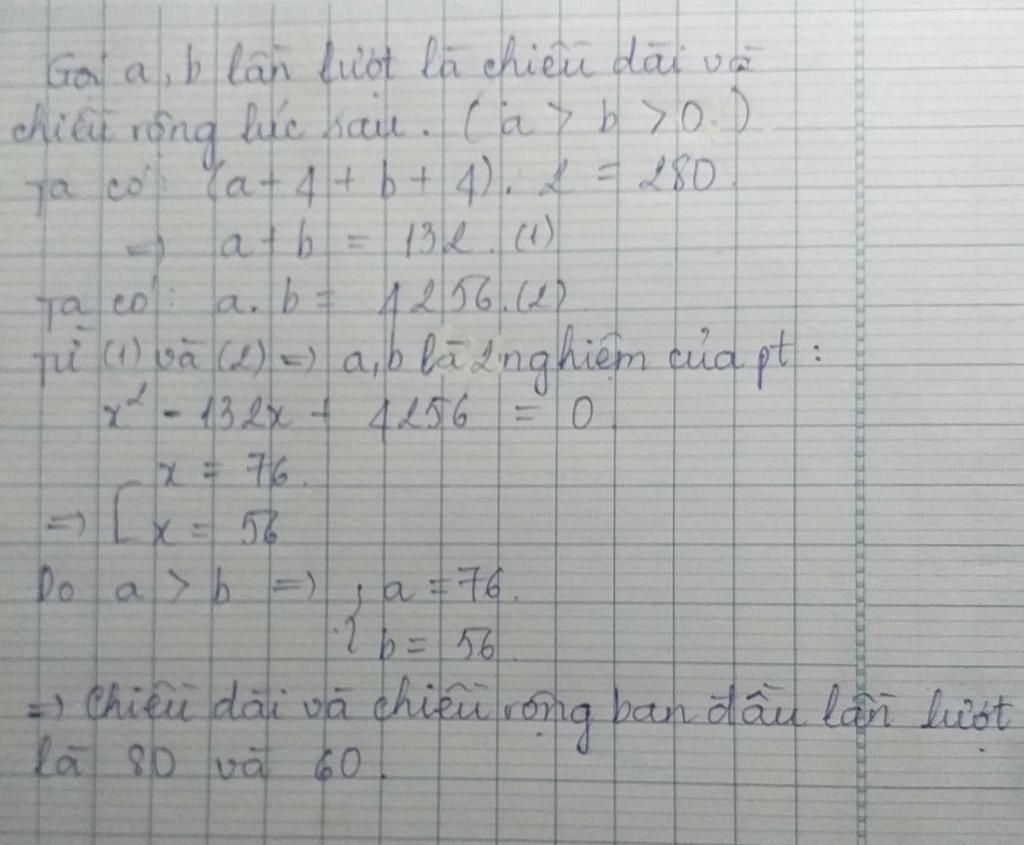 Gọi a, b lần lượt là chiều dài và
chiều rộng lúc sau. (a > b > 0.)
Ta có: (a + 4 + b + 4). 2 = 280
=> a + b = 132. (1)
Ta có: a. b = 4256. (2)
Từ (1) và (2) => a, b là 2 nghiệm của pt :
x² - 132x + 4256 = 0
x = 76.
=> [ x = 56
Do a > b => { a = 76.
b = 56
=> Chiều dài và chiều rộng ban đầu lần lượt
là 80 và 60